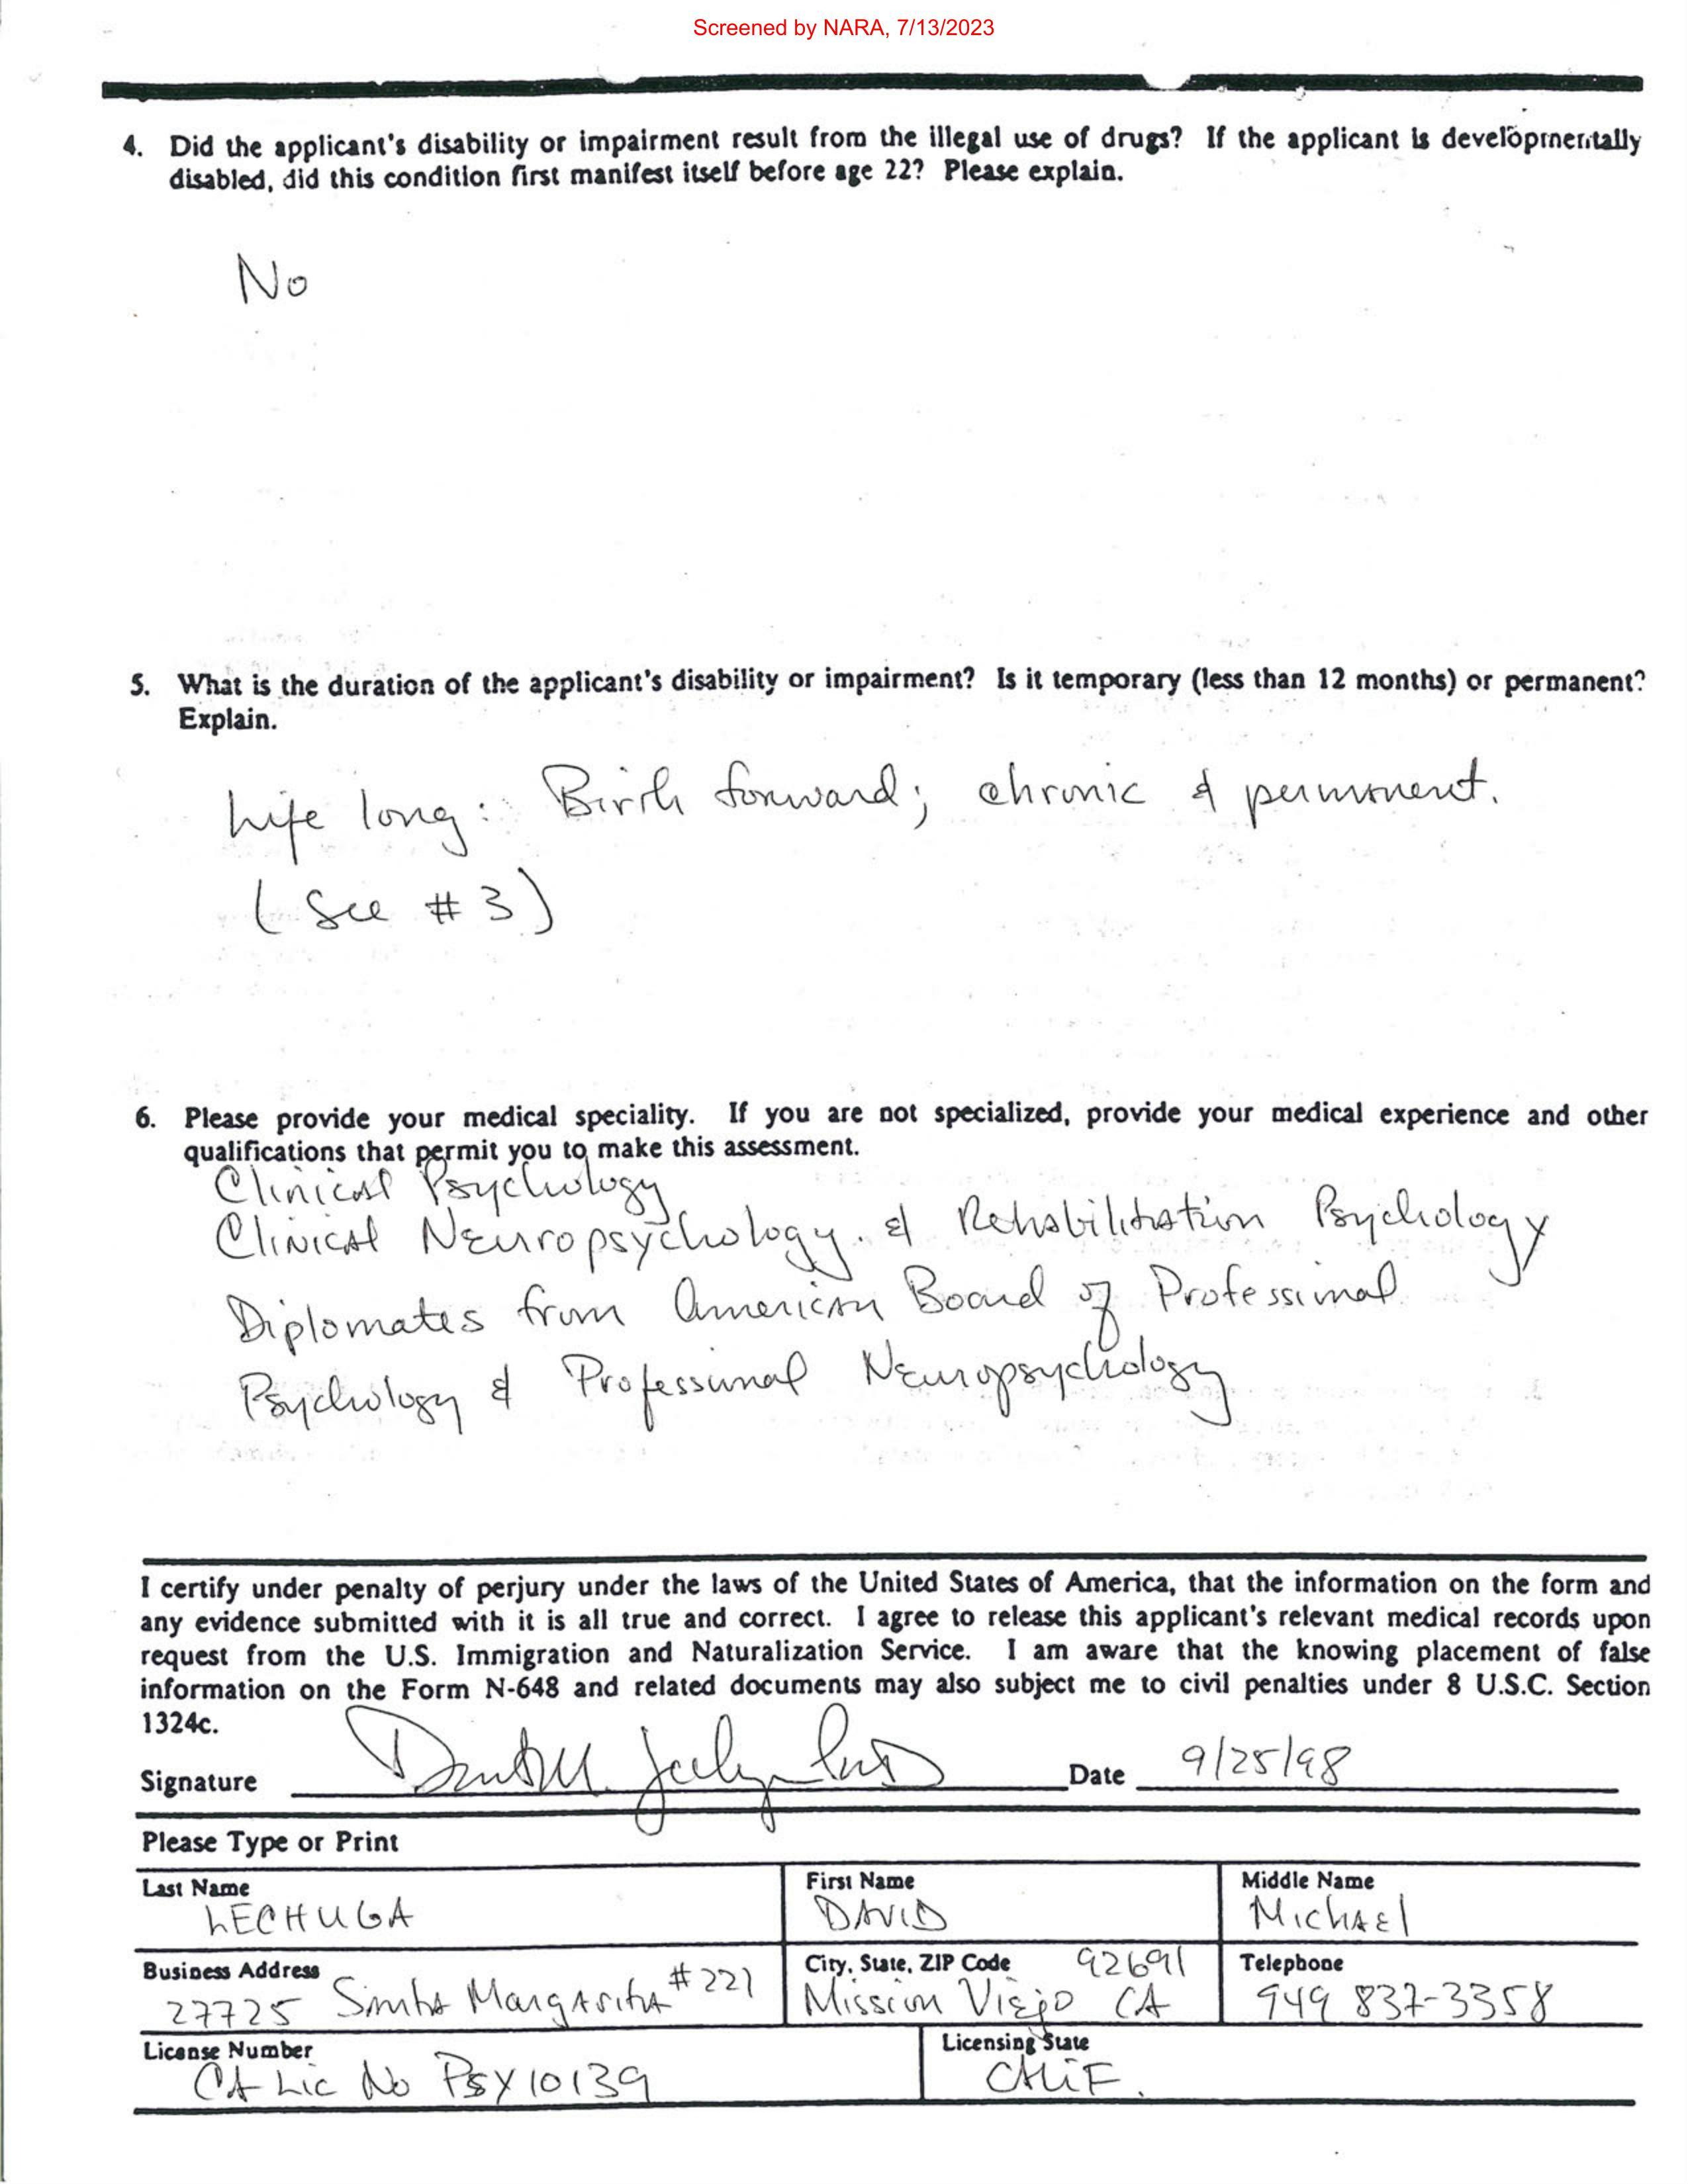 Screened by NARA, 7/13/2023
4. Did the applicant's disability or impairment result from the illegal use of drugs? If the applicant is developmentally
disabled, did this condition first manifest itself before age 22? Please explain.
No
5. What is the duration of the applicant's disability or impairment? Is it temporary (less than 12 months) or permanent?
Explain.
Life long: Birth forward; chronic & permanent.
(See #3)
6. Please provide your medical speciality. If you are not specialized, provide your medical experience and other
qualifications that permit you to make this assessment.
Clinical Psychology
Clinical Neuropsychology. & Rehabilitation Psychology
Diplomates from American Board of Professional
Psychology & Professional Neuropsychology
I certify under penalty of perjury under the laws of the United States of America, that the information on the form and
any evidence submitted with it is all true and correct. I agree to release this applicant's relevant medical records upon
request from the U.S. Immigration and Naturalization Service. I am aware that the knowing placement of false
information on the Form N-648 and related documents may also subject me to civil penalties under 8 U.S.C. Section
1324c.
Signature Date 9/25/98
Please Type or Print
Last Name First Name Middle Name
LECHUGA DAVID MichAEl
Business Address City, State, ZIP Code 92691 Telephone
27725 Santa Margarita #221 Mission Viejo CA 949 837-3358
License Number Licensing State
CA Lic No PSY10139 CALiF.